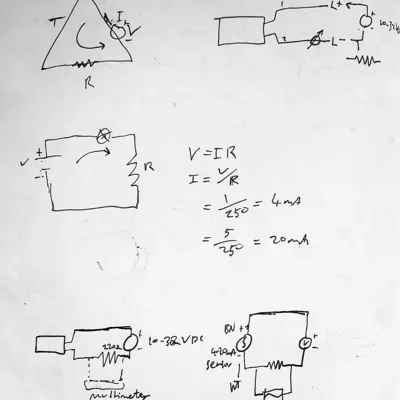 T I + V
-
R
1 L+ +
2 L- -
V + R
-
V = IR
I = V/R
= 1/250 = 4mA
= 5/250 = 20mA
220Ω + 10-32V DC
-
multimeter
BN + +
4-20mA -
sensor
WT